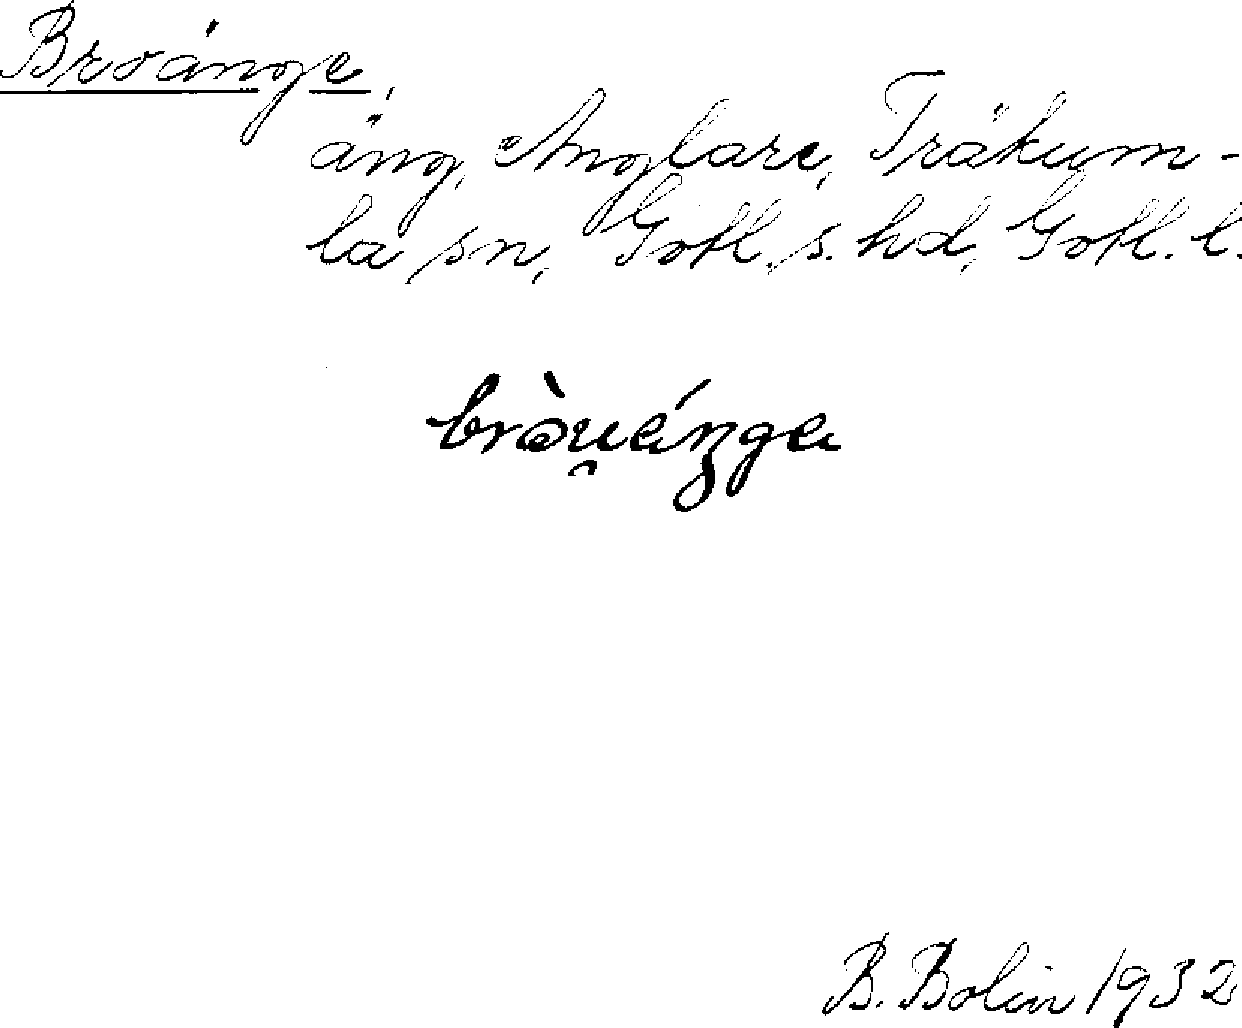 Broänge,
äng, Anglare, Träkum-
la sn, Gotl. s. hd, Gotl. l.
bròu̯éŋga
B. Bolin 1932